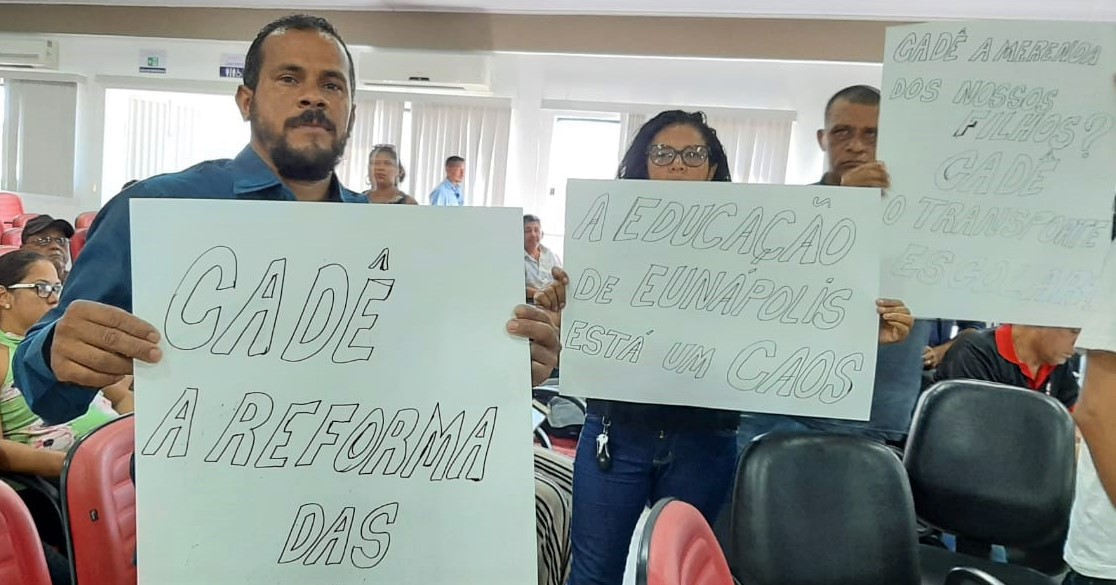 CADÊ
A REFORMA
DAS
A EDUCAÇÃO
DE EUNÁPOLIS
ESTÁ UM CAOS
CADÊ A MERENDA
DOS NOSSOS
FILHOS?
CADÊ
O TRANSPORTE
ESCOLAR